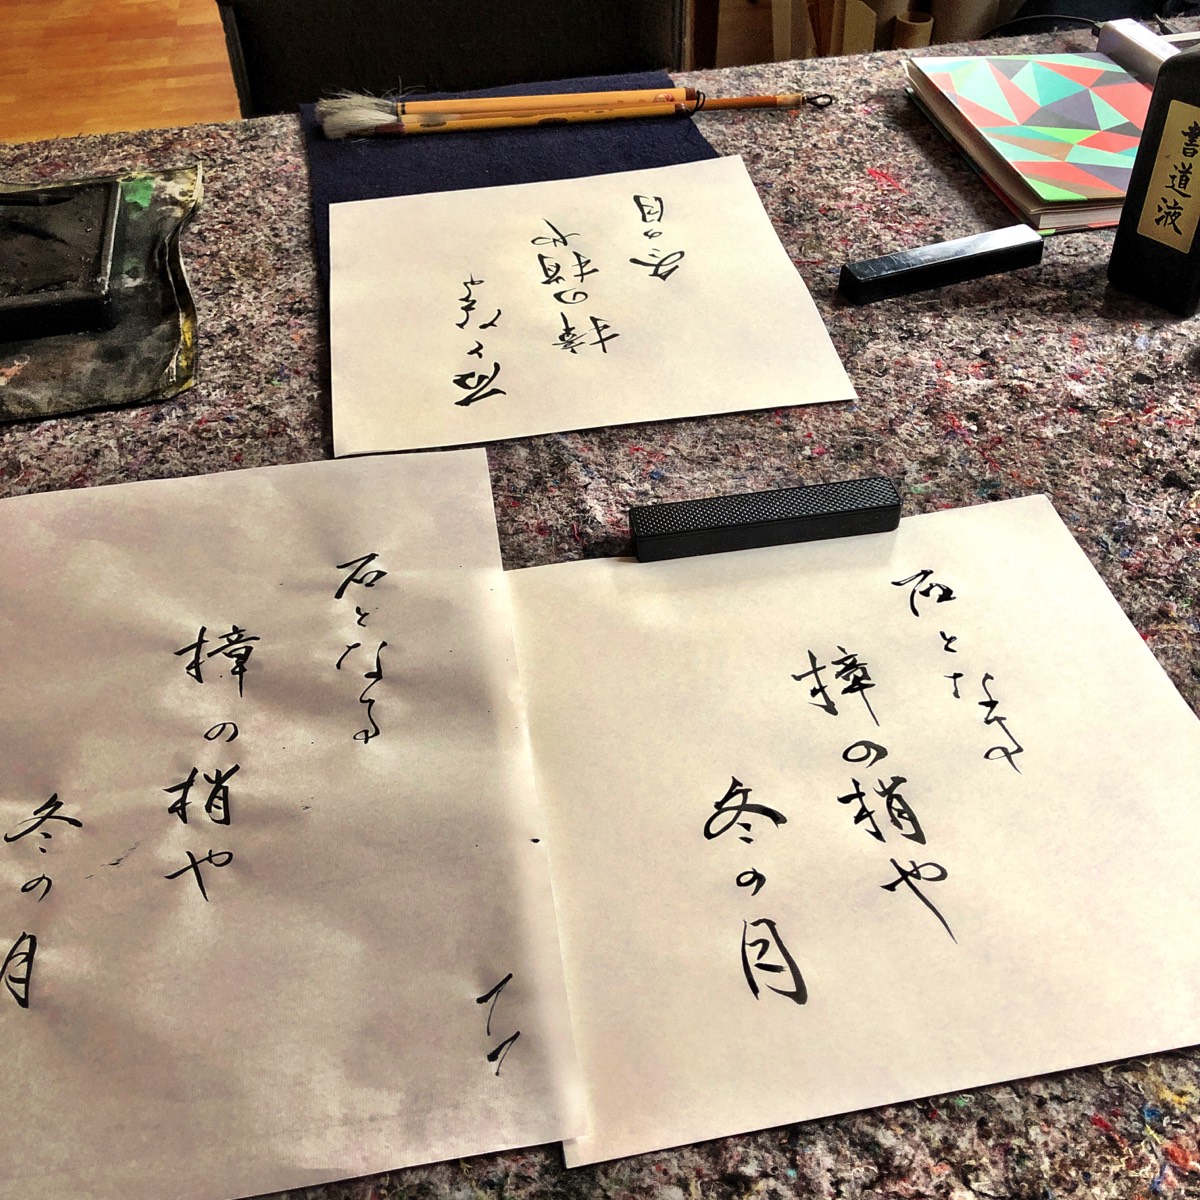 石となる
樟の梢や
冬の月
書道液
石となる
樟の梢や
冬の月
石となる
樟の梢や
冬の月